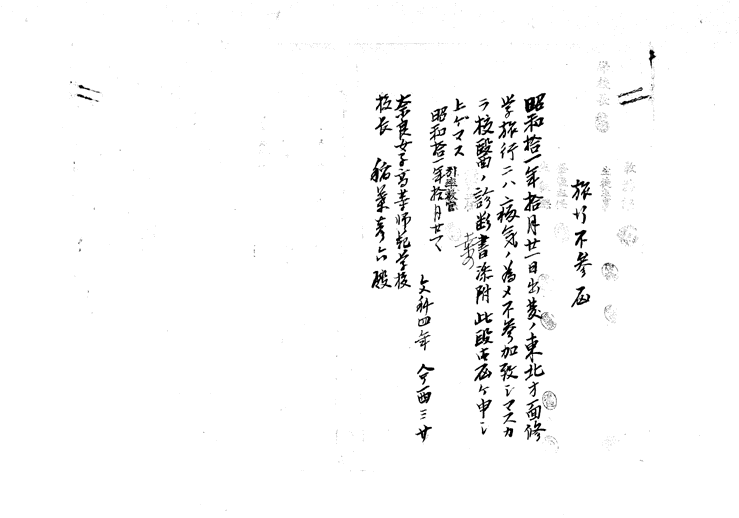 旅行不参届
昭和拾一年拾月廿一日出発ノ東北方面修
学旅行ニハ病気ノ為メ不参加致シマスカ
ラ校医ノ診断書添附此段御届ケ申シ
上ゲマス
引率教官
昭和拾一年拾月廿
文科四年 今西三
奈良女子高等師範学校
校長 殿
学校長